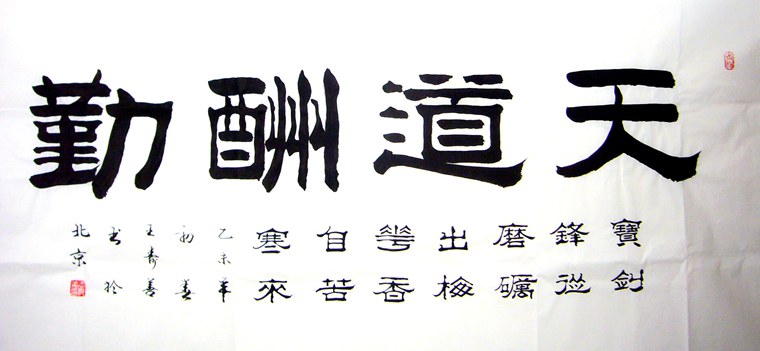 天道酬勤
寶劍
鋒從
磨礪
出梅
華香
自苦
寒來
乙未年
初
王壽善
书於
北京